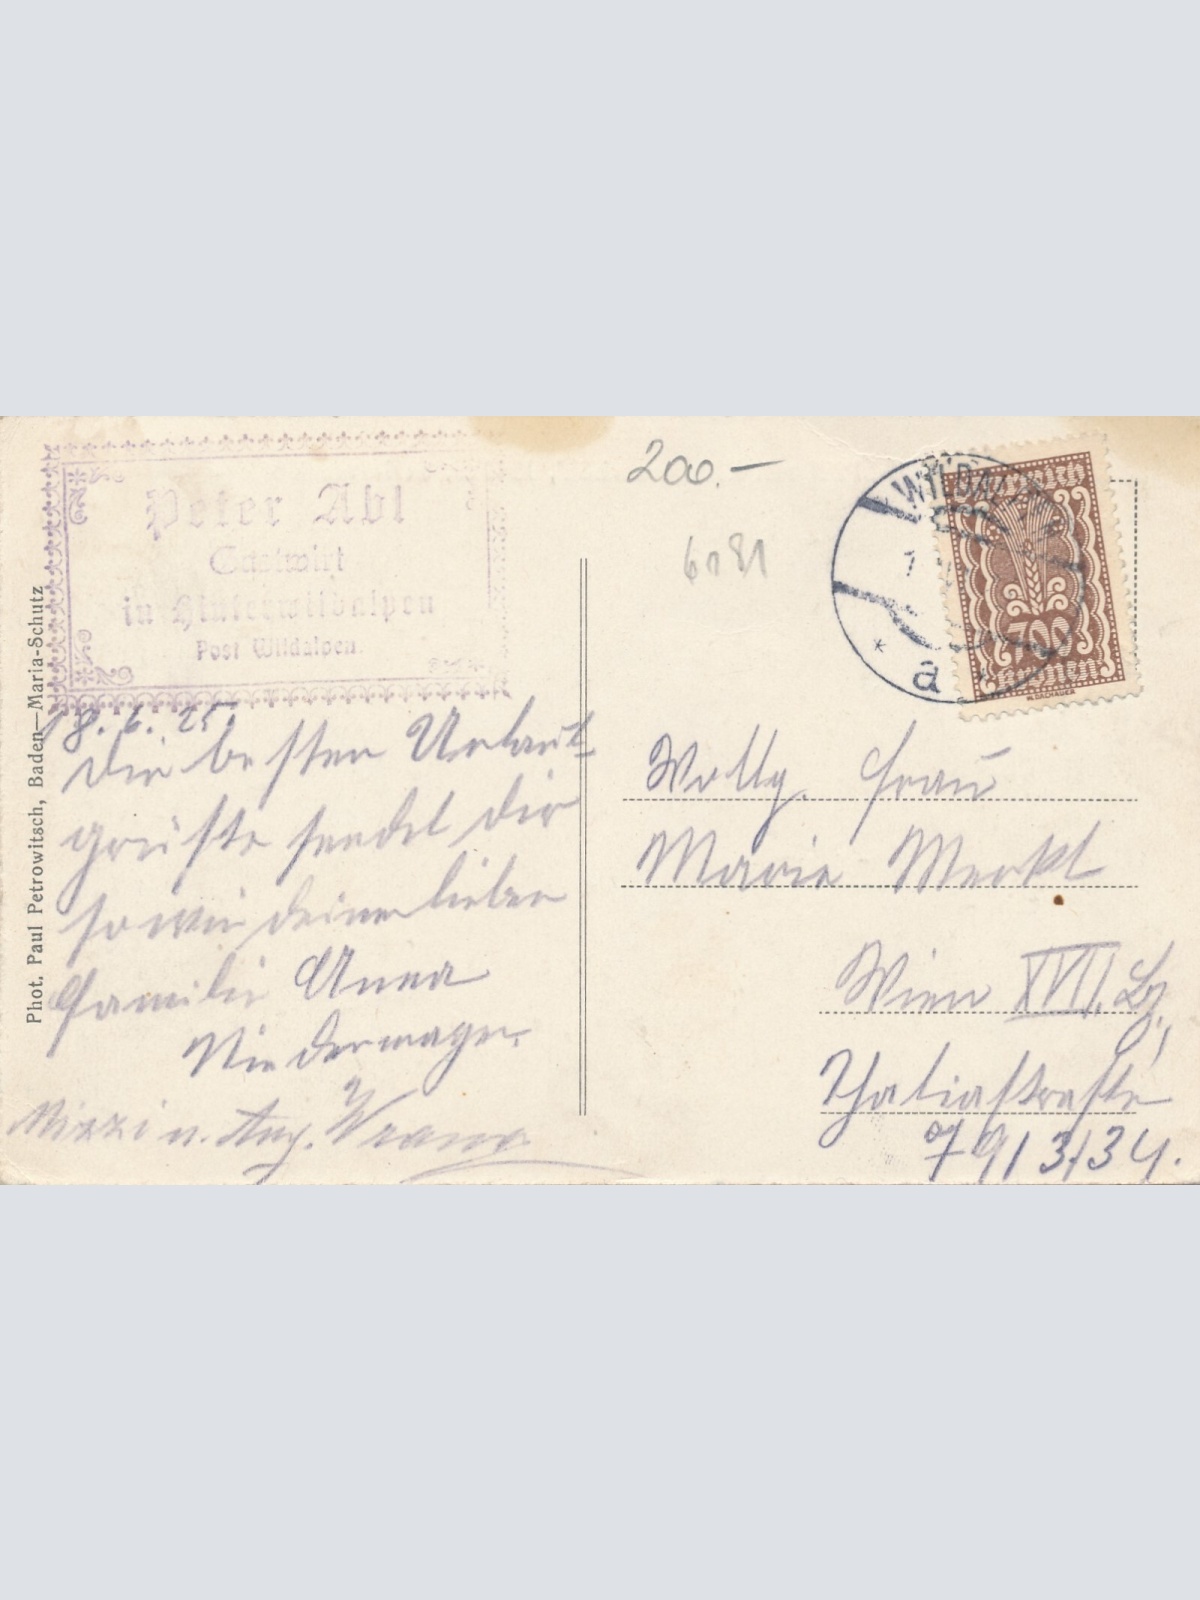 Peter Abl
Gastwirt
in Hinterwildalpen
Post Wildalpen.
Phot. Paul Petrowitsch, Baden—Maria-Schutz
18. 6. 25.
Die besten Urlaub
grüße sendet dir
sowie deiner lieben
Familie Anna
Niedermayer.
Mizzi u. Aug.
200.–
WILDALPEN
a
Österreich
700
Kronen
Frau
Marie Merkl
Wien XVII. Bz,
Thaliastraße
79/3/34.